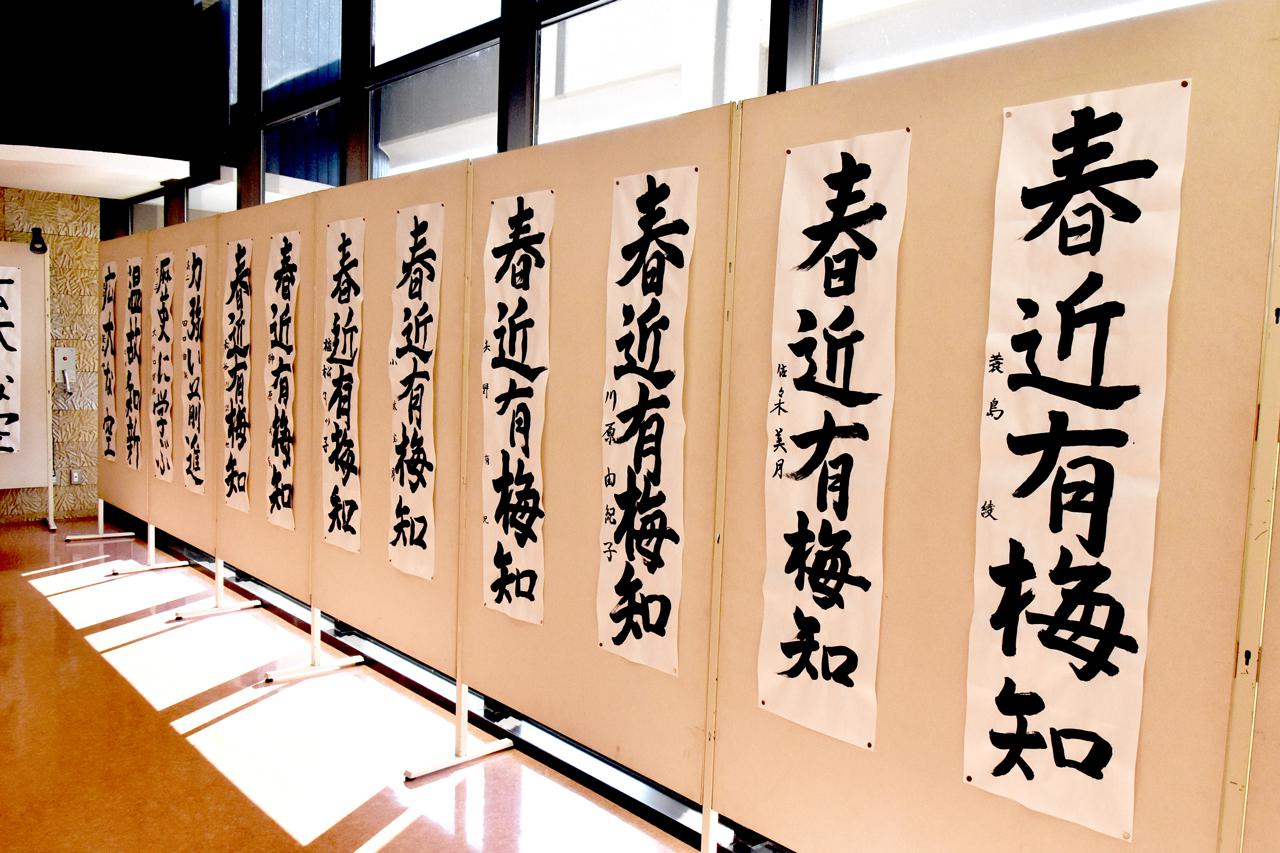 春近有梅知
菱島 綾
春近有梅知
佐々木 美月
春近有梅知
川原 由紀子
春近有梅知
矢野
春近有梅知
春近有梅知
植松
春近有梅知
春近有梅知
力強い前進
歴史に学ぶ
温故知新
広大な空
大な空